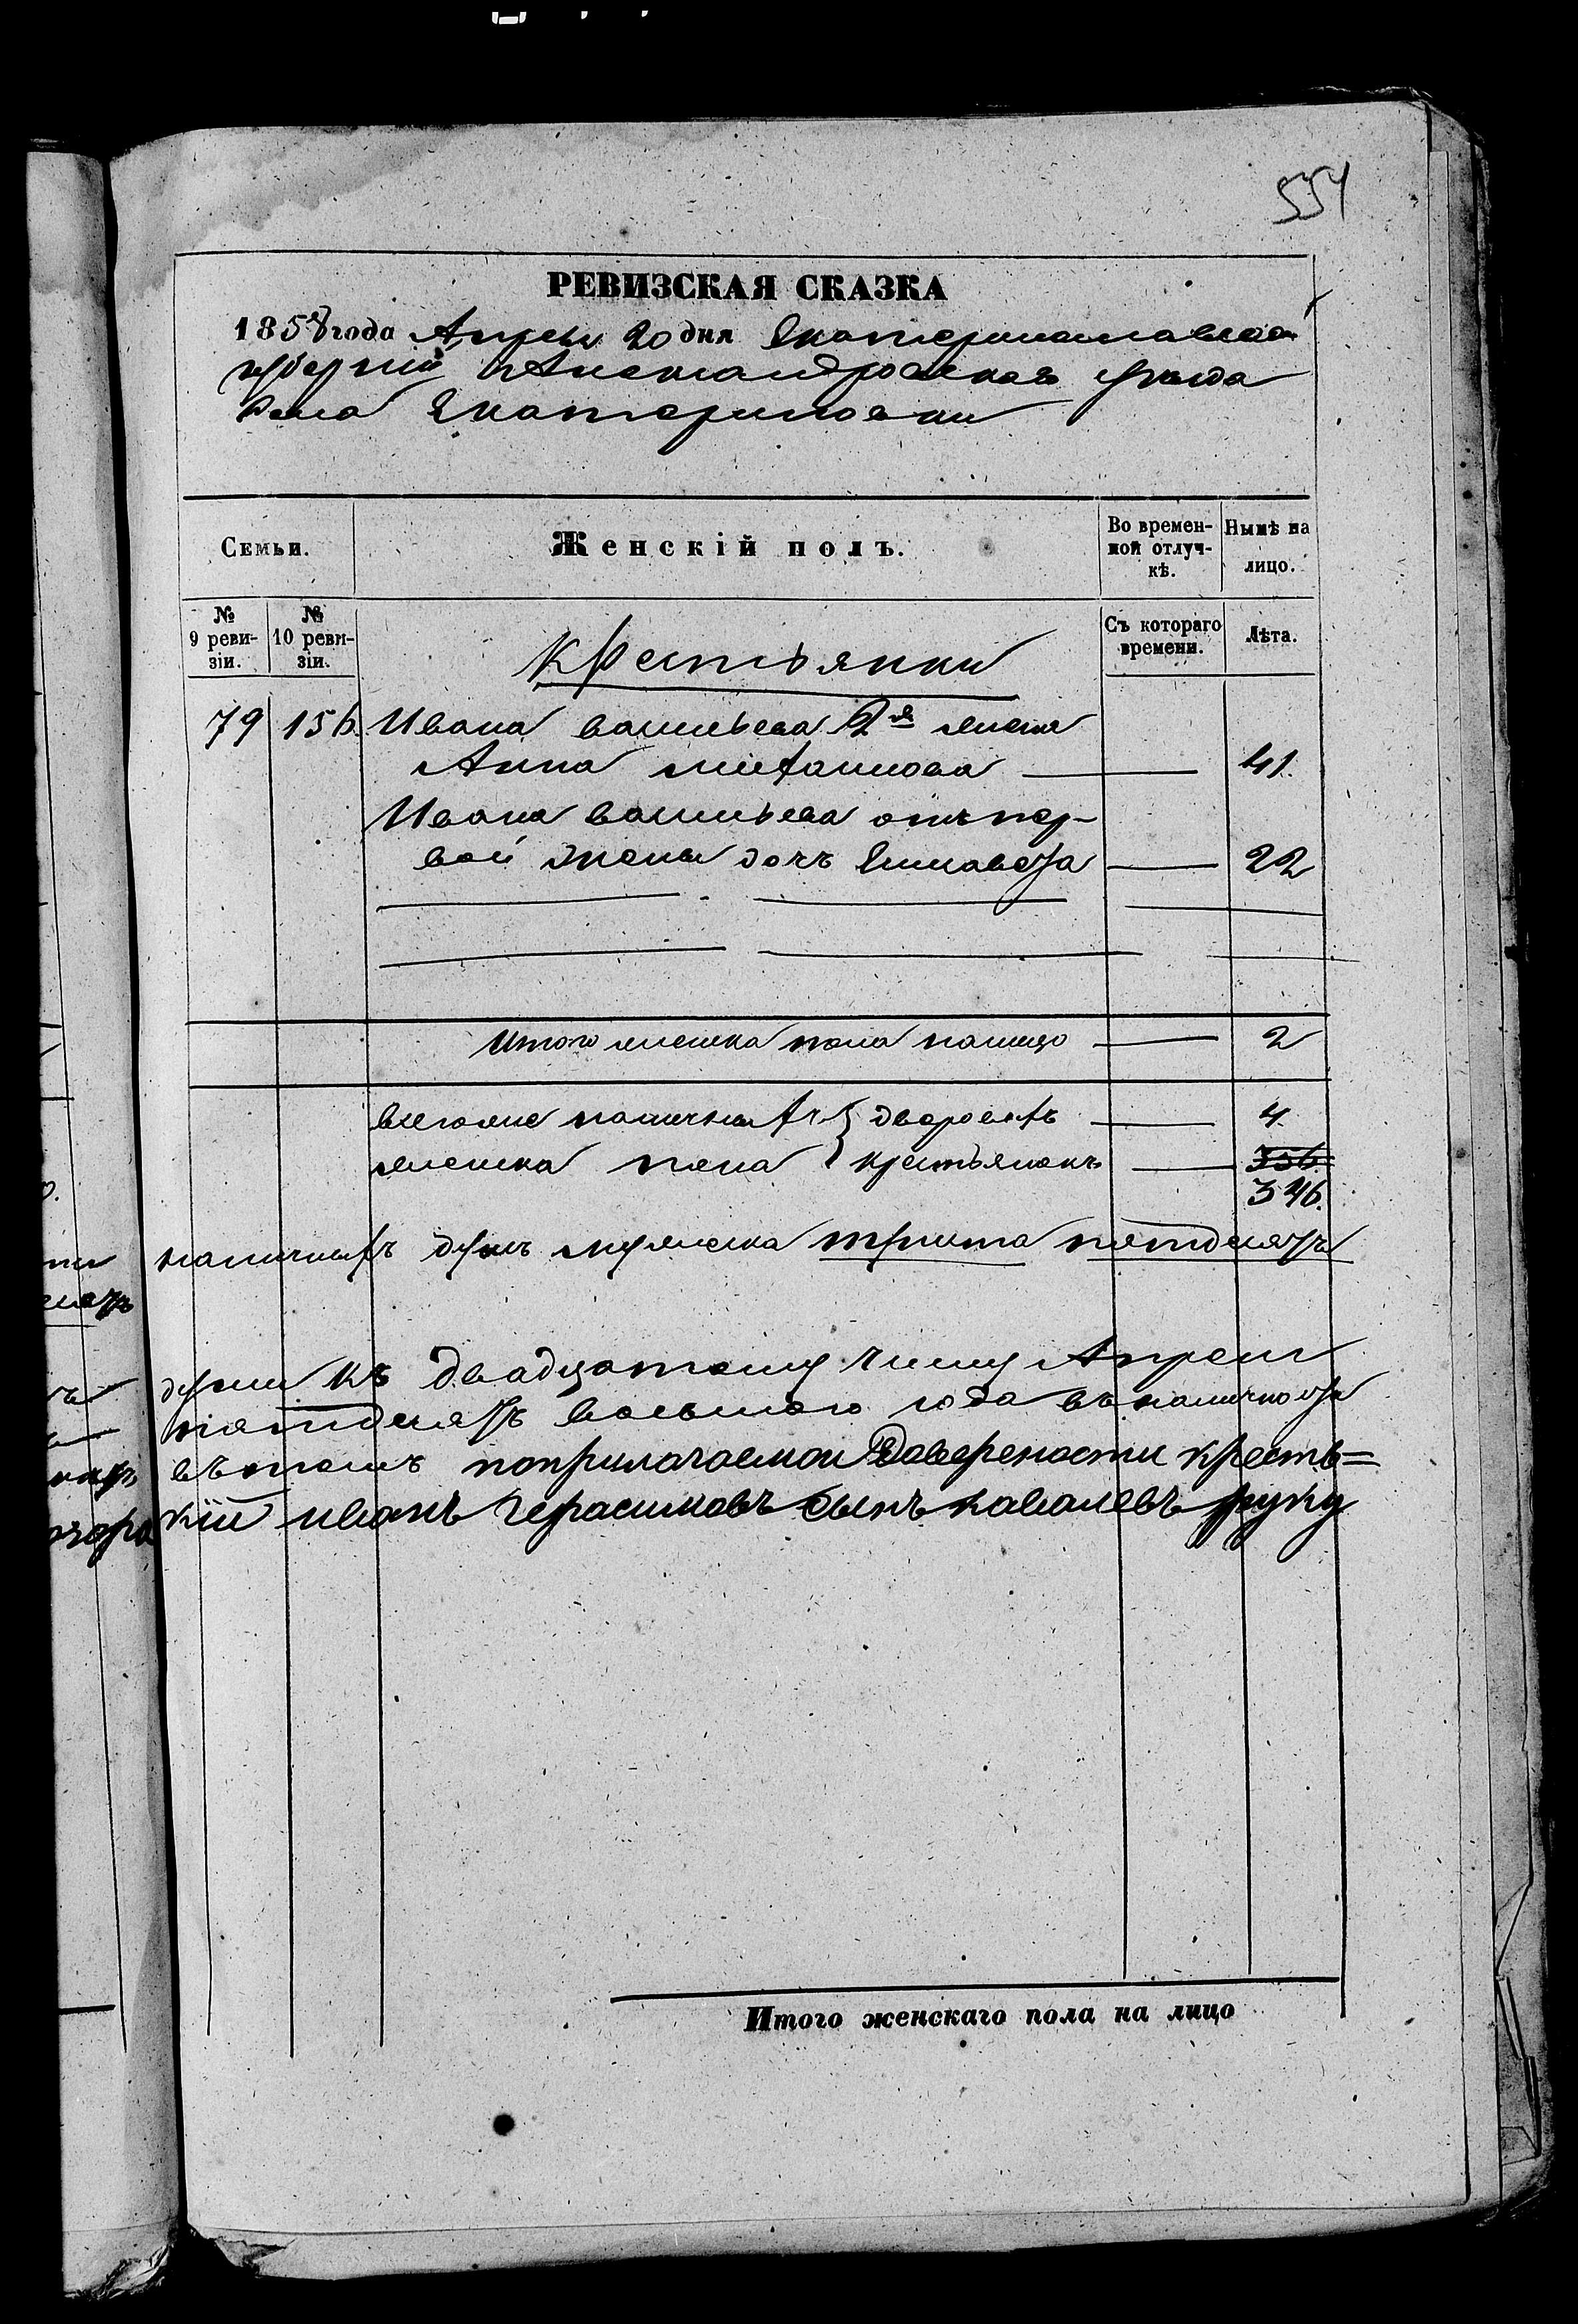 554
РЕВИЗСКАЯ СКАЗКА
1858 года Апреля 20 дня Екатеринославской
губернии Александровскаго уезда
села Екатериновки
Семьи.
Женскій полъ.
Во времен-
ной отлуч-
кѣ.
Нынѣ на
лицо.
№
9 реви-
зіи.
№
10 реви-
зіи.
Крестьянки
Съ котораго
времени.
Лѣта.
79 156. Ивана Васильева 2я жена
Анна 41.
Ивана Васильева отъ пер-
вой жены дочь Елисавета 22
Итого женска пола налицо 2
всего же наличныхъ дворовыхъ 4.
женска пола крестьянокъ 356.
346.
наличныхъ душъ мужеска триста пятдесятъ
души къ двадцатому числу Апреля
пятдесятъ восьмого года въ наличности
въ томъ поприлагаемои доверености кресть=
кій иванъ Герасимовъ сынъ Кавалевъ руку
Итого женскаго пола на лицо